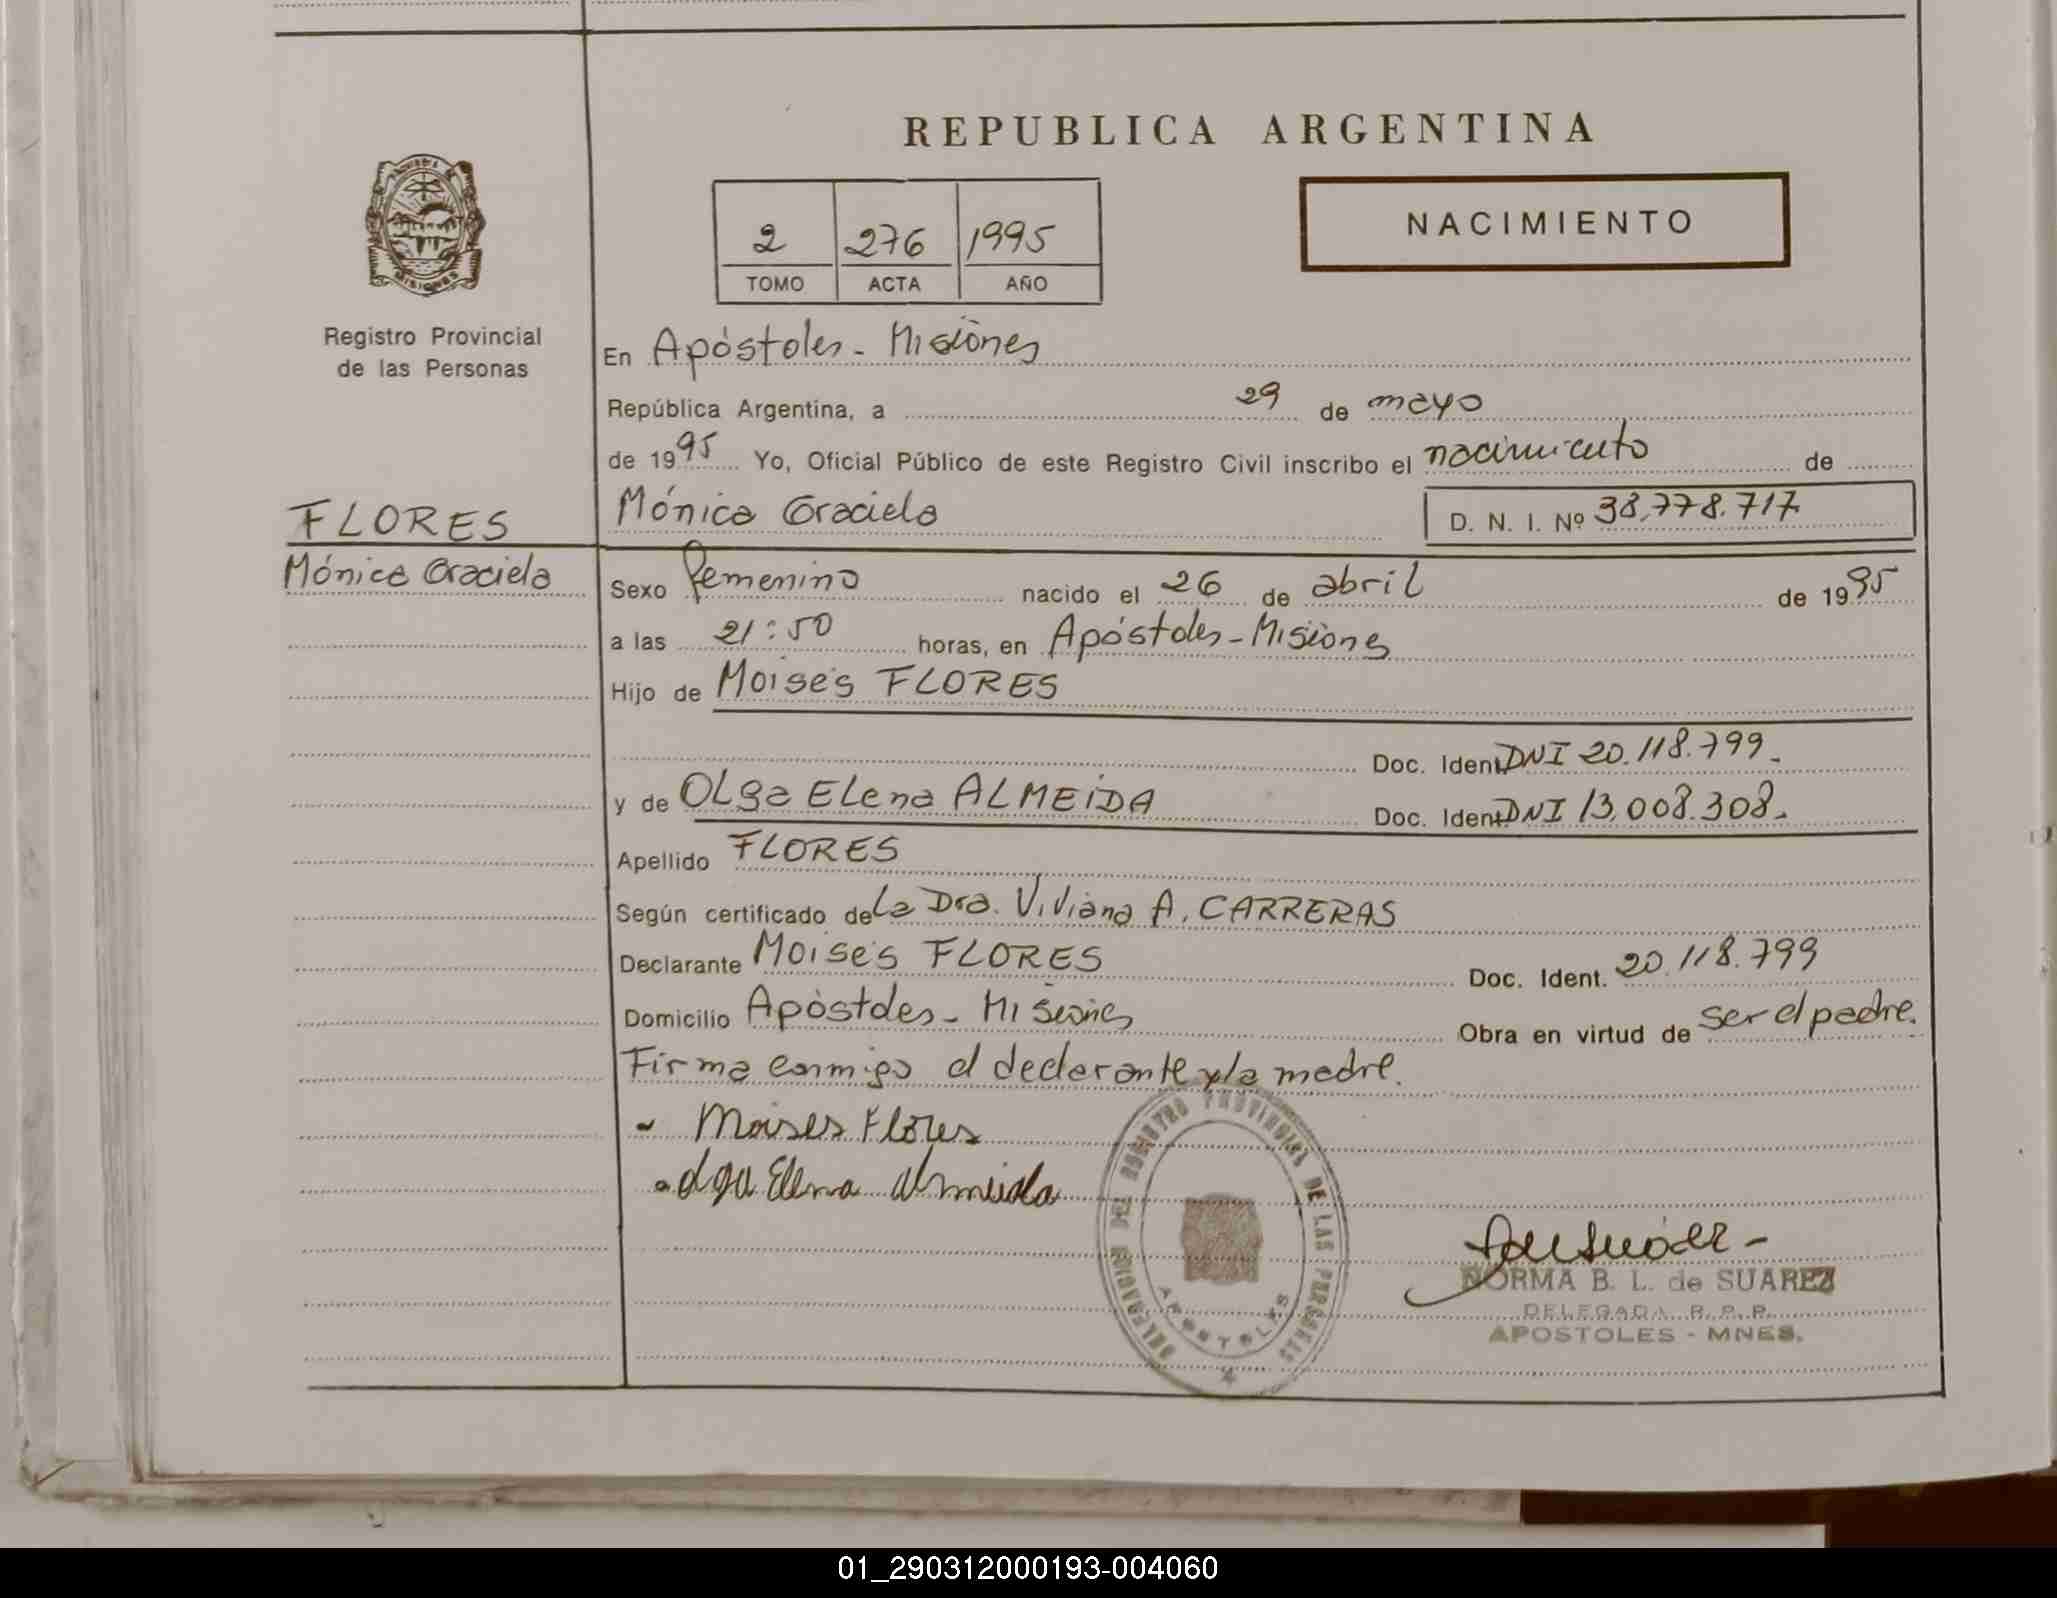 REPUBLICA ARGENTINA
NACIMIENTO
2 276 1995
TOMO ACTA AÑO
MISIONES
Registro Provincial
de las Personas
En Apóstoles - Misiones
República Argentina, a 29 de mayo
de 1995 Yo, Oficial Público de este Registro Civil inscribo el nacimiento de
Mónica Graciela D. N. I. Nº 38.778.717.
FLORES
Mónica Graciela
Sexo femenino nacido el 26 de abril de 1995
a las 21:50 horas, en Apóstoles - Misiones
Hijo de Moisés FLORES
Doc. Ident. DNI 20.118.799.
y de Olga Elena ALMEIDA Doc. Ident. DNI 13.008.308.
Apellido FLORES
Según certificado de la Dra. Viviana A. CARRERAS
Declarante Moisés FLORES Doc. Ident. 20.118.799
Domicilio Apóstoles - Misiones Obra en virtud de ser el padre.
Firma conmigo el declarante y la madre.
- Moises Flores
- Olga Elena Almeida
DELEGACION DEL REGISTRO PROVINCIAL DE LAS PERSONAS
APOSTOLES
NORMA B. L. de SUAREZ
DELEGADA R. P. P.
APOSTOLES - MNES.
01_290312000193-004060